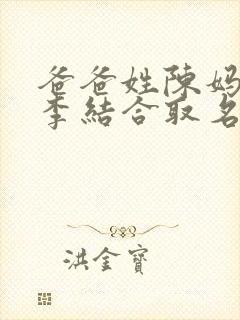 爸爸姓陳媽
李結合取名
洪金寶